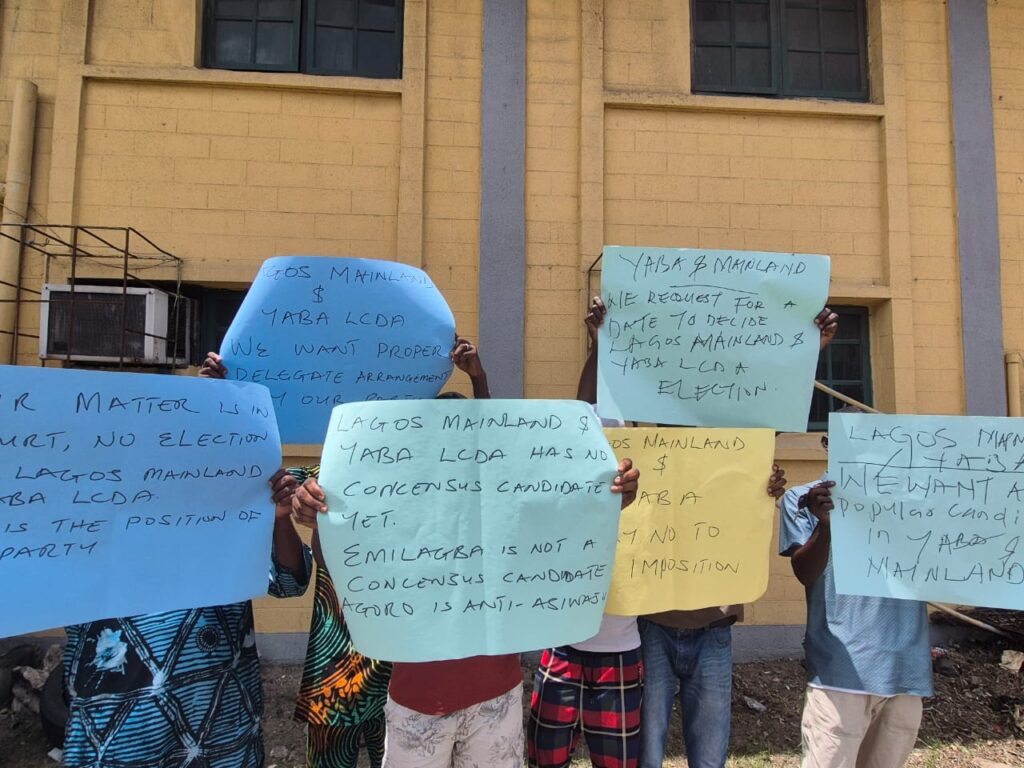 GOS MAINLAND
$
YABA LCDA
WE WANT PROPER
DELEGATE ARRANGEMENT
OUR
YABA $ MAINLAND
WE REQUEST FOR A
DATE TO DECIDE
LAGOS MAINLAND $
YABA LCDA
ELECTION.
UR MATTER IS IN
URT, NO ELECTION
LAGOS MAINLAND
ABA LCDA.
IS THE POSITION OF
PARTY
LAGOS MAINLAND $
YABA LCDA HAS NO
CONCENSUS CANDIDATE
YET.
EMILAGBA IS NOT A
CONCENSUS CANDIDATE
AGORO IS ANTI-ASIWAJU
OS MAINLAND
$
ABA
Y NO TO
IMPOSITION
LAGOS MAIN
YABA
WE WANT A
POPULAR CANDI
IN YABA $
MAINLAND